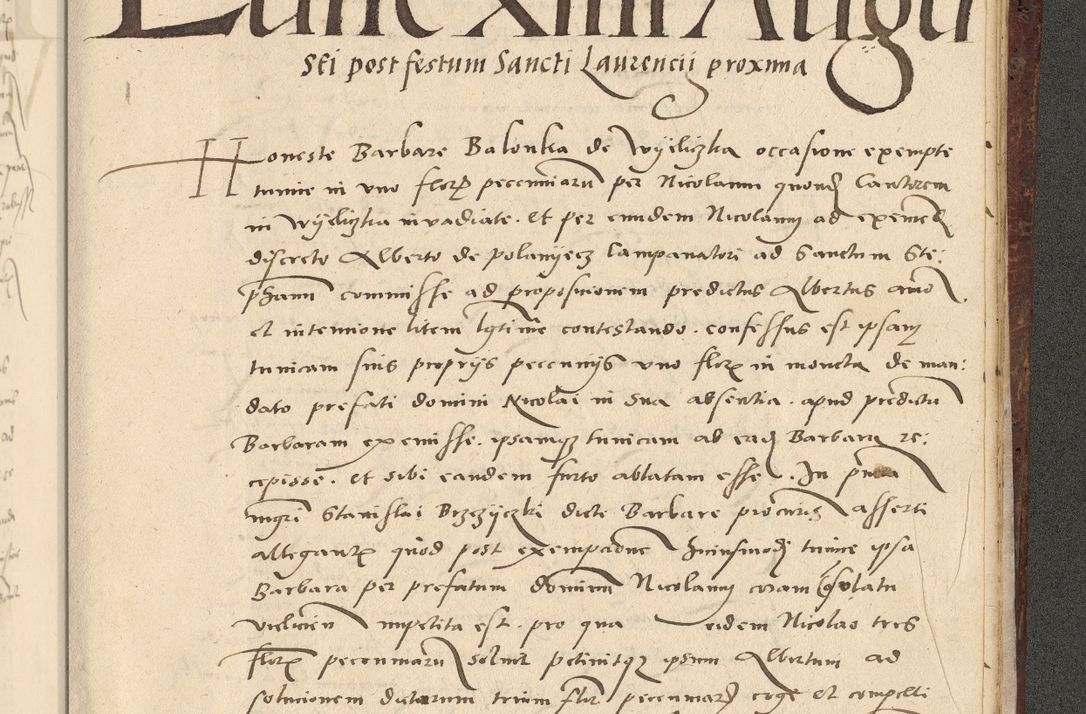 Lune XIIII Augu
sti post festum Sancti Laurencii proxima
Honeste Barbare Balonka de Wyeliczka occasione exempte
tunice in uno floreno pecuniarum per Nicolaum quondam Cantorem
in Wyeliczka invadiate. Et per eundem Nicolaum ad eximendum
discreto Alberto de Polanyecz Campanatori ad Sanctum Ste:
phanum commisse ad propositionem predictus Albertus animo
et intentione litem legitime contestando. confessus est ipsam
tunicam suis propriis pecuniis uno floreno in moneta de man:
dato prefati domini Nicolai in sua absentia. apud predictam
Barbaram exemisse. ipsamque tunicam ab eadem Barbara re:
cepisse. et sibi eandem furto ablatam esse. In presentia
magistri Stanislai Brzezyczki dicte Barbare procuratoris asserti
allegantis quod post exempcionem huiusmodi tunice ipsa
Barbara per prefatum dominum Nicolaum coram Consulatu
vielicien impetita est. pro qua eidem Nicolao tres
florenos pecuniarum solvit petivitque ipsum Albertum ad
solucionem datarum trium florenorum pecuniarum cogi et compelli